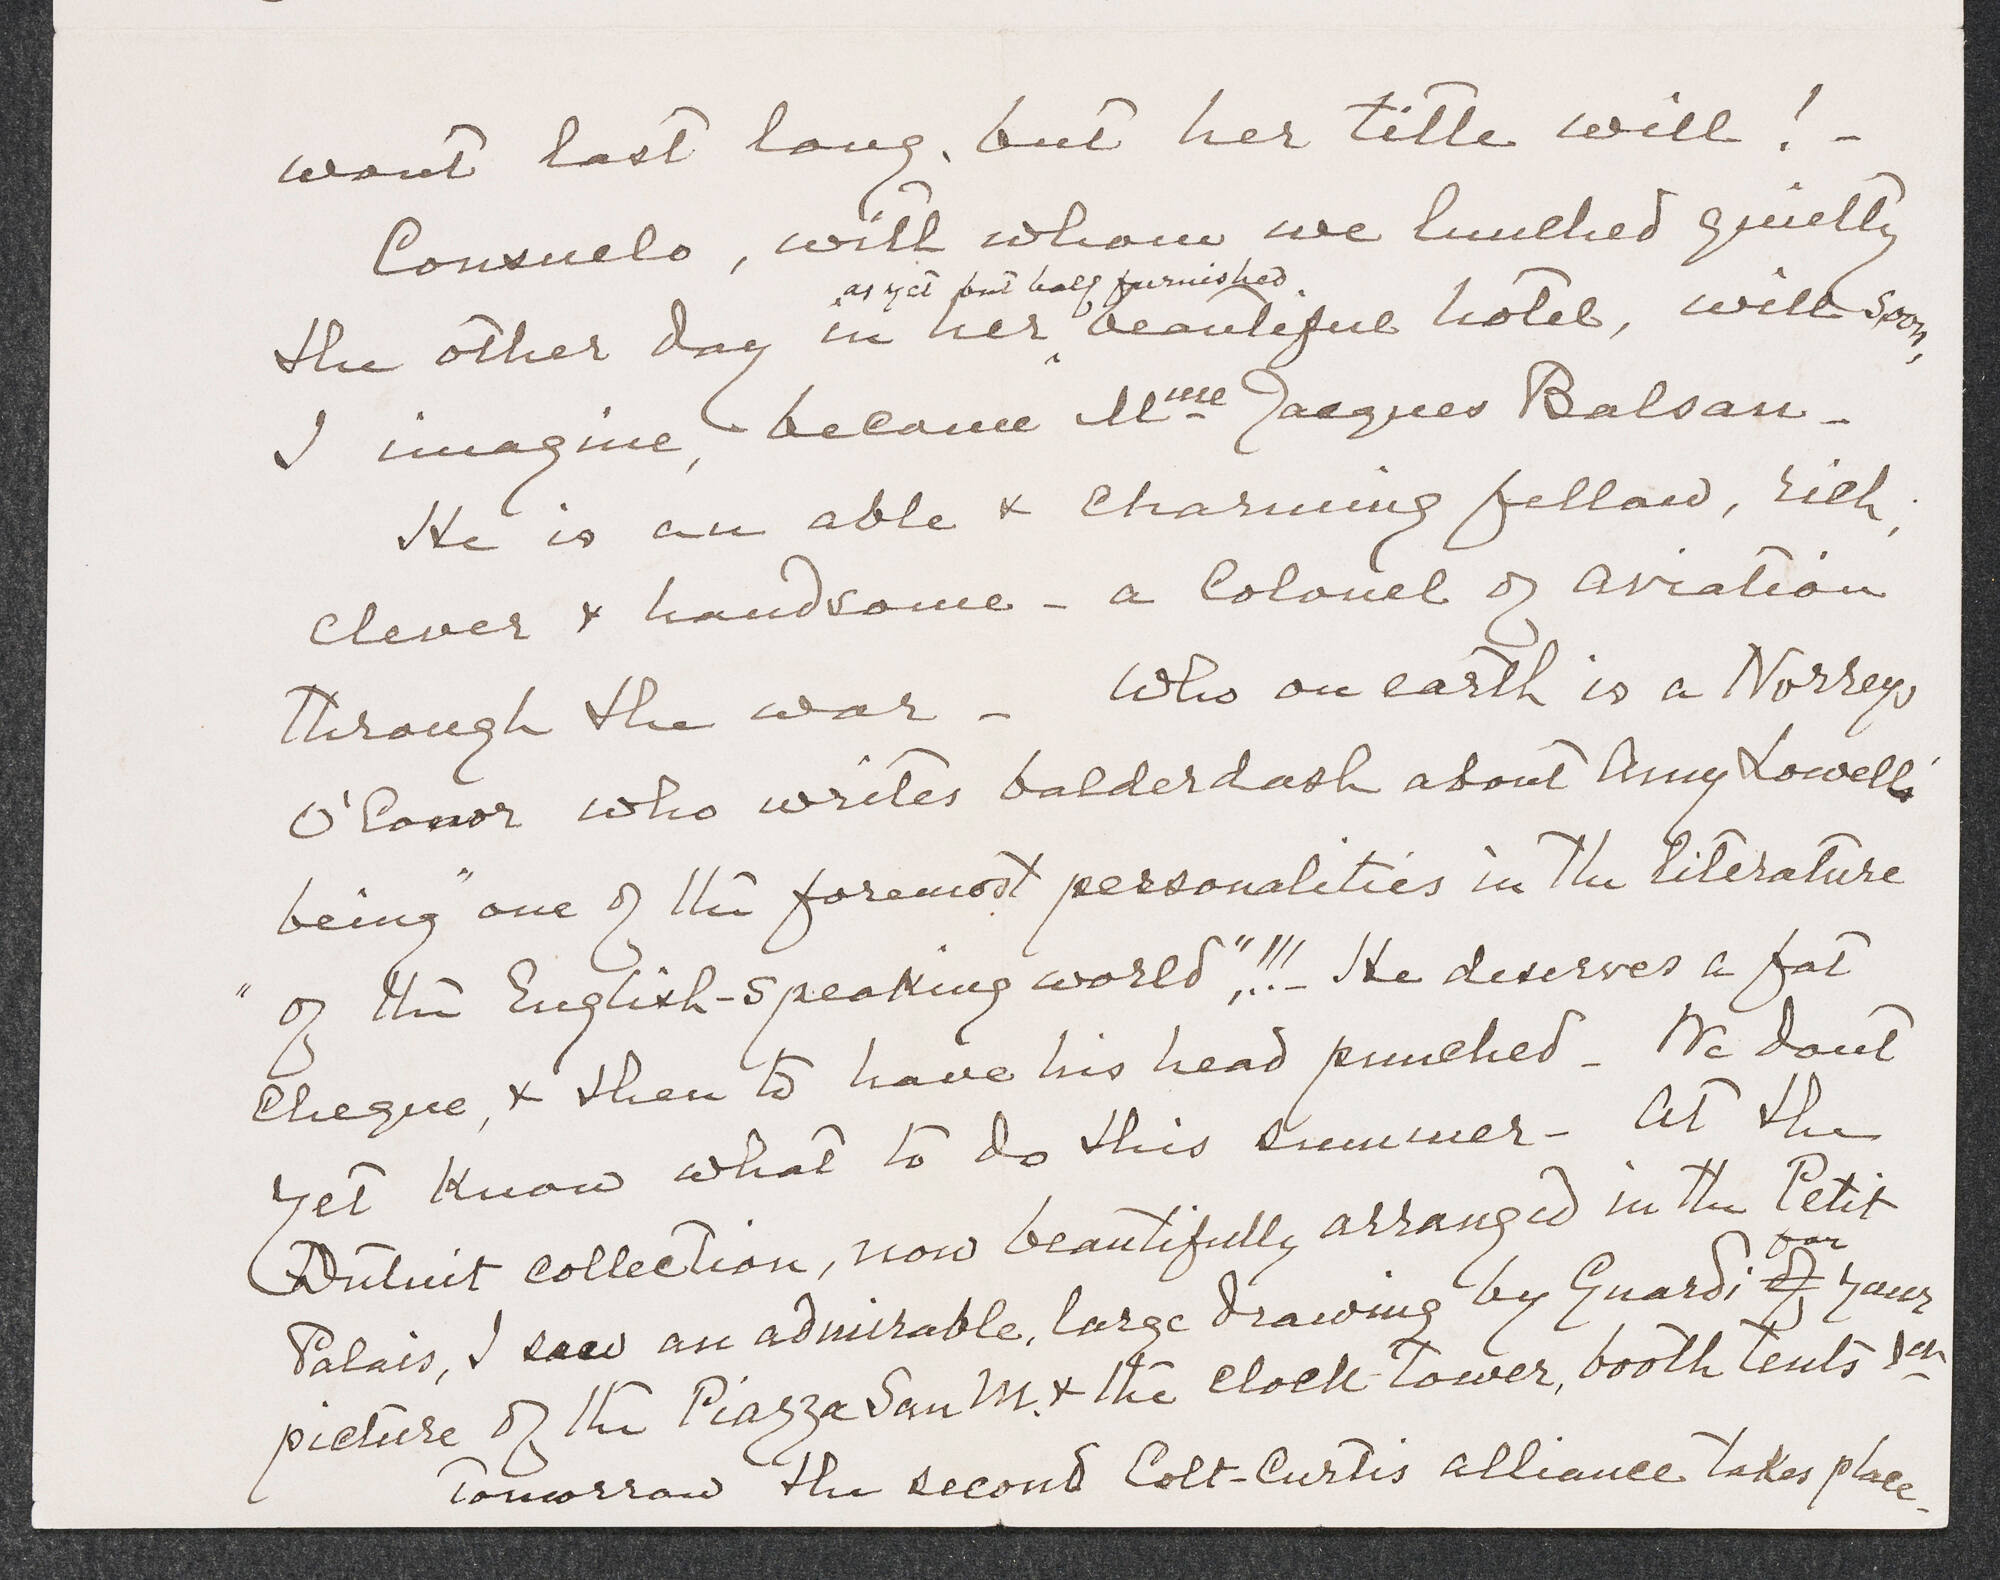 wont last long, but her title will! -
Consuelo, with whom we lunched quietly
as yet but half furnished
the other day in her ‸ beautiful hotel, will soon,
I imagine, become Mme Jacques Balsan -
He is an able & charming fellow, rich,
clever & handsome - a Colonel of Aviation
through the war - Who on earth is a Norreys
O'Conor who writes balderdash about Amy Lowell's
being "one of the foremost personalities in the literature
" of the English-speaking world",!!! - He deserves a fat
cheque, & then to have his head punched - We dont
yet know what to do this summer - At the
Dutuit collection, now beautifully arranged in the Petit
Palais, I saw an admirable, large drawing by Guardi of for your
picture of the Piazza San M. & the clock-tower, booth tents &ca
Tomorrow the second Colt-Curtis alliance takes place -